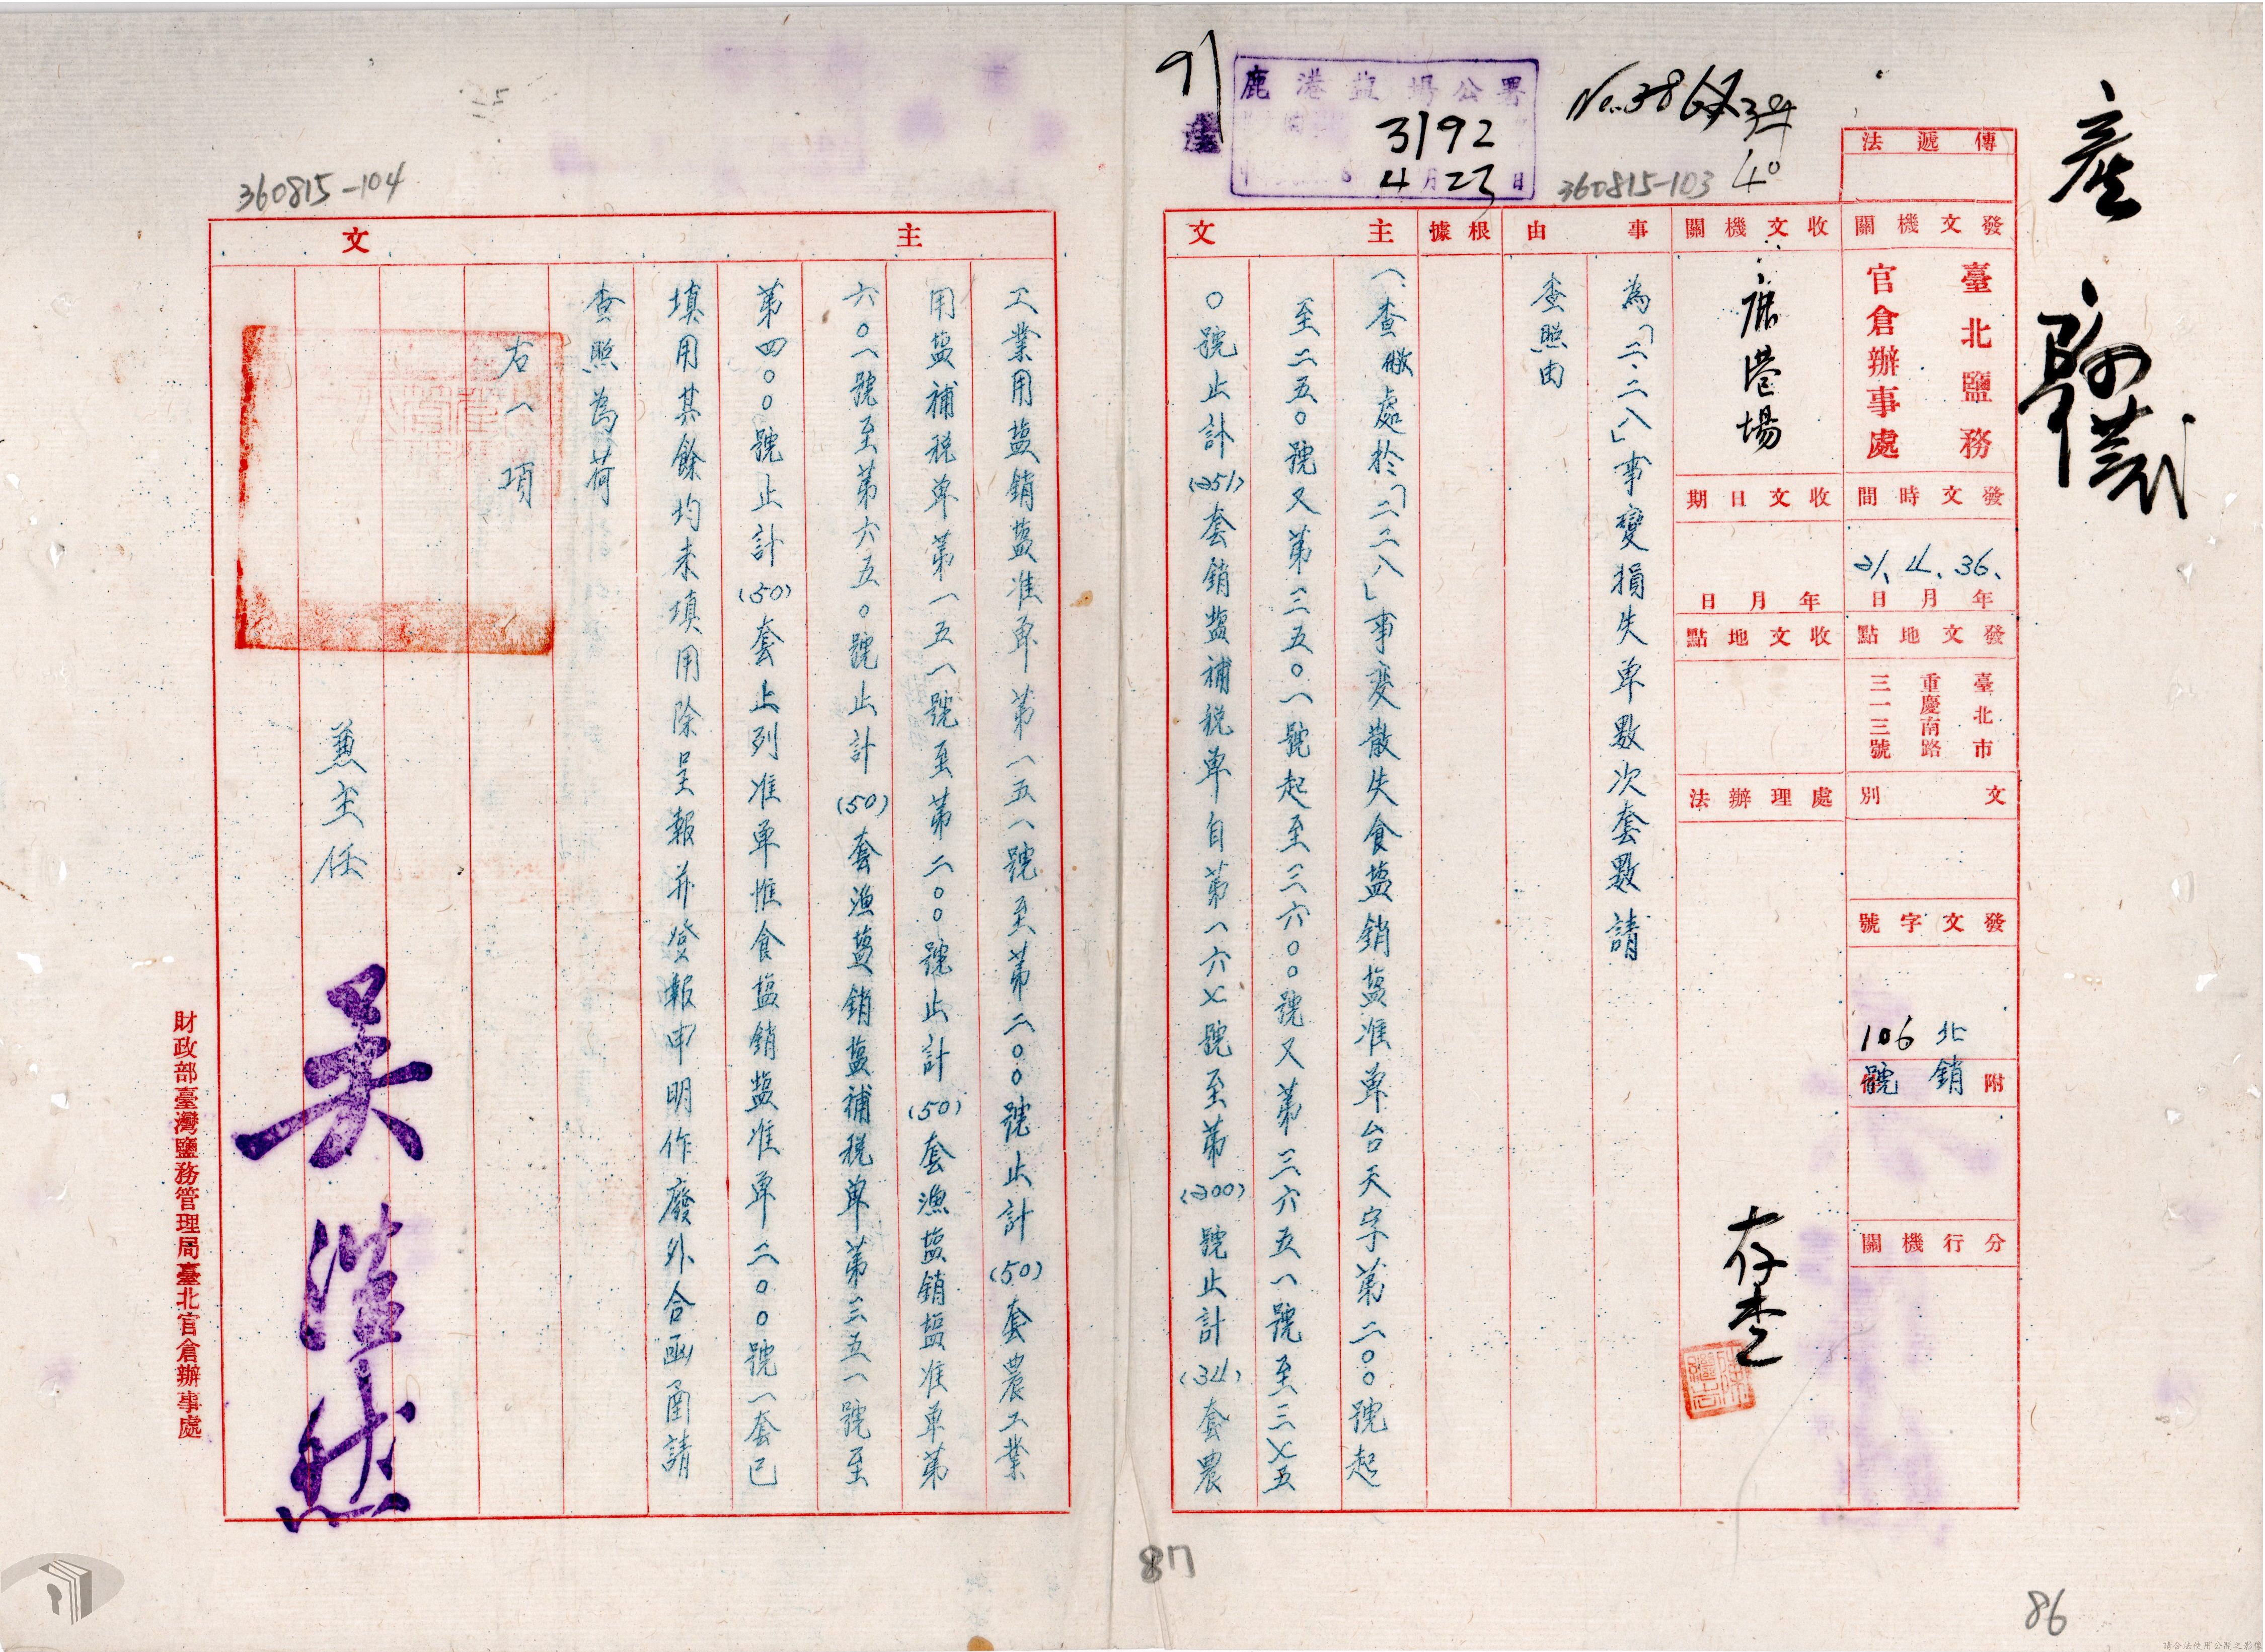 產
No. 386
360815-103
40
91
鹿港鹽場公署
3192
4月23日
傳遞法
發文機關
臺北鹽務
官倉辦事處
發文時間
36、4、21、
年月日
發文地點
臺北市
重慶南路
三一三號
文別
發文字號
北銷
106號
附件
分行機關
收文機關
鹿港場
收文日期
年月日
收文地點
處理辦法
存查
事由
為「二、二八」事變損失單數次套數請
查照由
根據
主文
一、查敝處於「二二八」事變散失食盐銷盐准單台天字第二〇〇號起
至二五〇號又第三五〇一號起至三六〇〇號又第三六五一號至三七五
〇號止計(251)套銷盐補税單自第一六七號至第(200)號止計(34)套農
360815-104
主文
工業用盐銷盐准單第一五一號至第二〇〇號止計(50)套農工業
用盐補税單第一五一號至第二〇〇號止計(50)套漁盐銷盐准單第
六〇一號至第六五〇號止計(50)套漁盐銷盐補税單第三五一號至
第四〇〇號止計(50)套上列准單惟食盐銷盐准單二〇〇號一套已
填用其餘均未填用除呈報并登報申明作廢外合函函請
查照為荷
右一項
兼主任
吳溎然
財政部臺灣鹽務管理局臺北官倉辦事處
87
86
請合法使用公開之影像